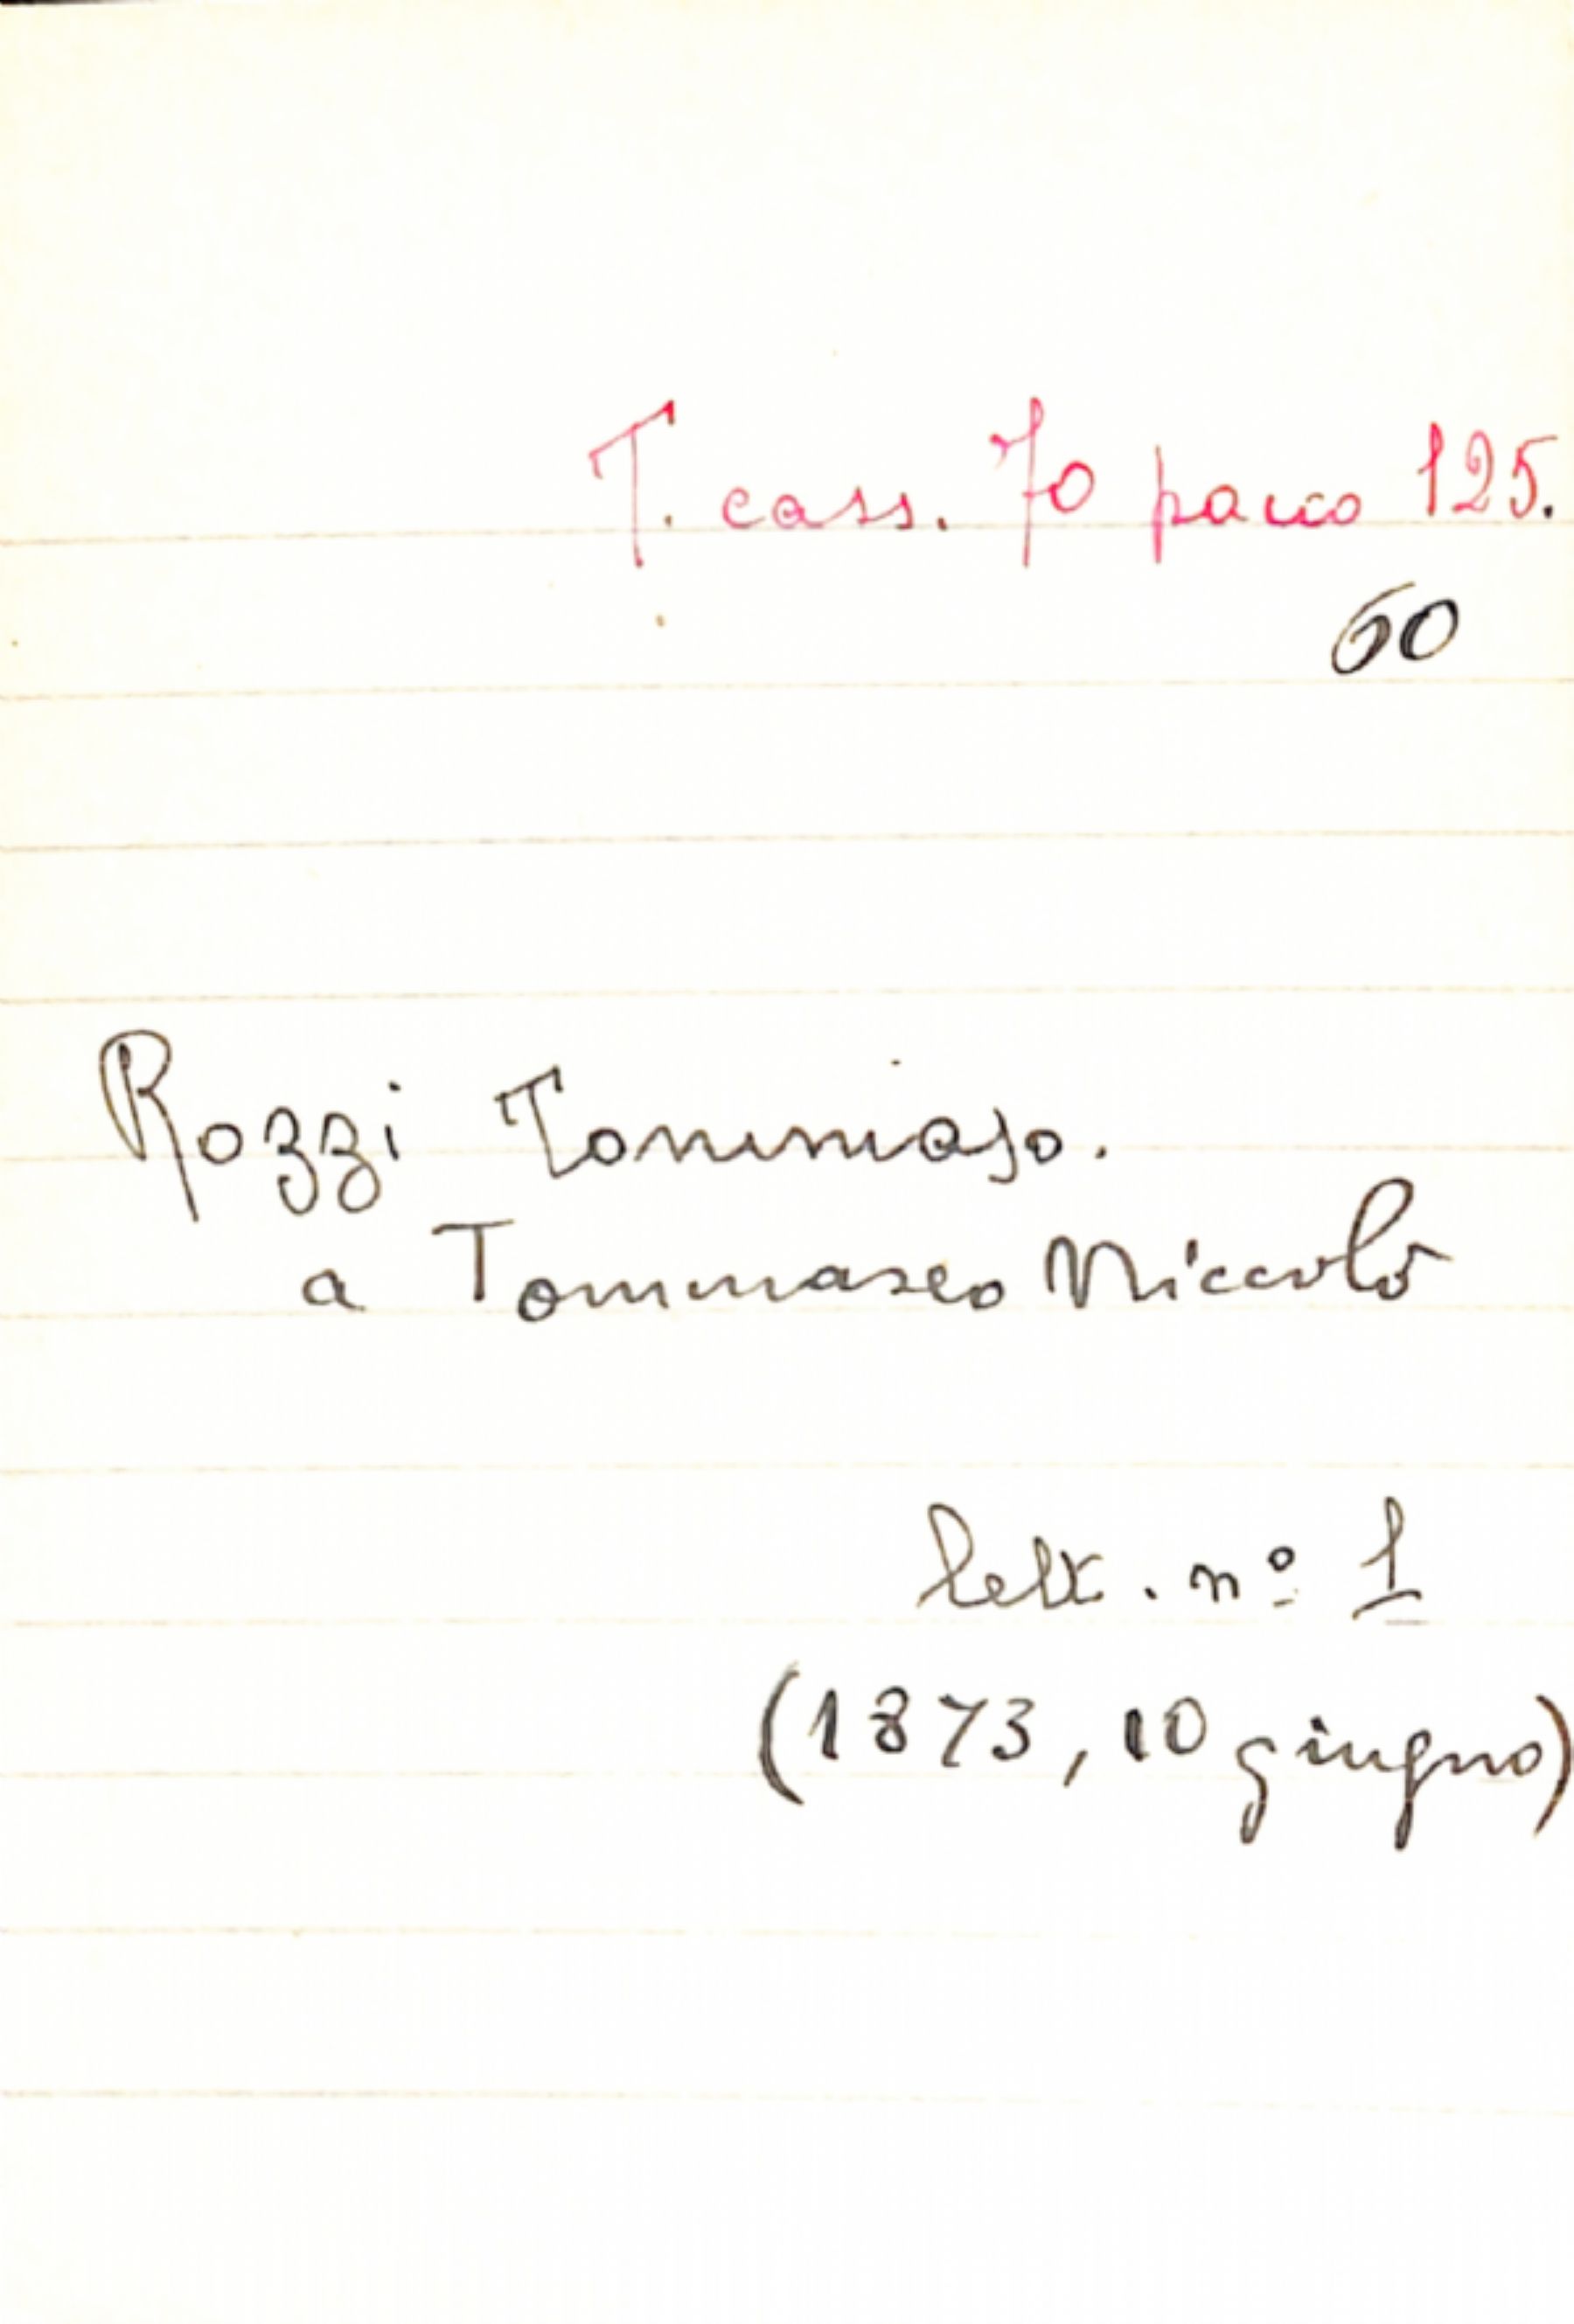 T. cass. 70 pacco 125.
60
Rozzi Tommaso.
a Tommaseo Niccolò
lett. nº 1
(1873, 10 giugno)